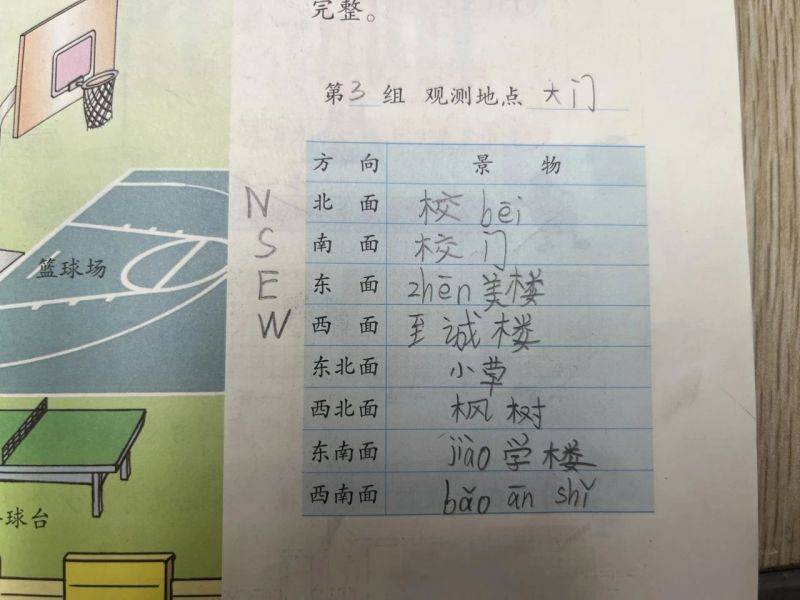 完整。
第3组 观测地点 大门
方 向 景 物
N 北 面 校 bēi
S 南 面 校 门
E 东 面 zhēn美楼
W 西 面 至诚楼
东北面 小草
西北面 枫树
东南面 jiào学楼
西南面 bǎo ān shǐ
篮球场
球台